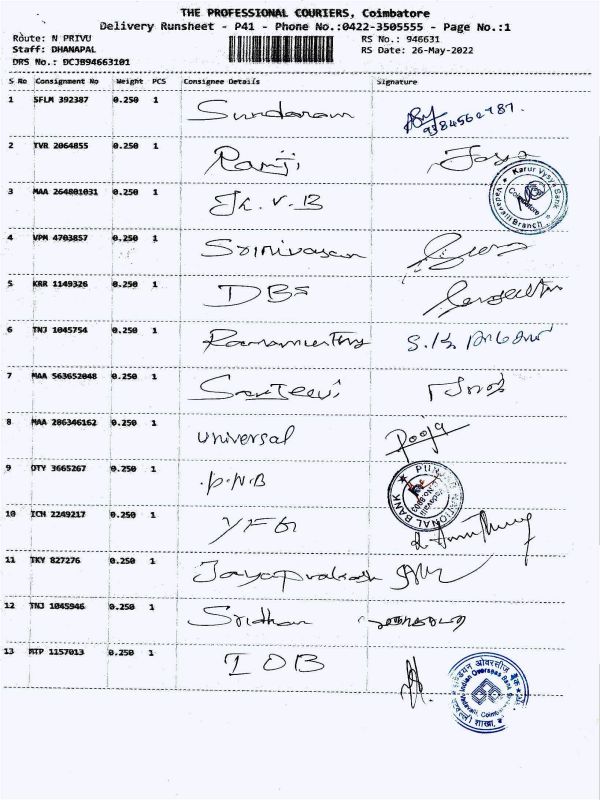 THE PROFESSIONAL COURIERS, Coimbatore
Delivery Runsheet - P41 - Phone No.:0422-3505555 - Page No.:1
Route: N PRIVU
RS No.: 946631
Staff: DHANAPAL
RS Date: 26-May-2022
DRS No.: DCJB94663101
S No Consignment No Weight PCS Consignee Details Signature
1 SFLM 392387 0.250 1 Sundaram
2 TVR 2064855 0.250 1 Ramji Jaya
Karur Vysya Bank
Coimbatore
Vadavalli Branch
3 MAA 264801031 0.250 1 K.V.B
4 VPM 4703857 0.250 1 Srinivasan
5 KRR 1149326 0.250 1 DBS
6 TNJ 1045754 0.250 1 Ramamurthy
7 MAA 563652048 0.250 1
8 MAA 286346162 0.250 1 Universal Pooja
9 OTY 3665267 0.250 1 P.N.B
PUNJAB NATIONAL BANK
10 ICN 2249217 0.250 1
11 TKY 827276 0.250 1 Jayaprakash
12 TNJ 1045946 0.250 1 Sridhar
13 MTP 1157013 0.250 1 IOB
इण्डियन ओवरसीज बैंक
Indian Overseas Bank